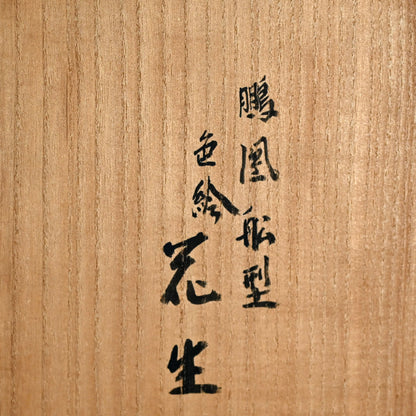 鵬凰船型
色絵花生